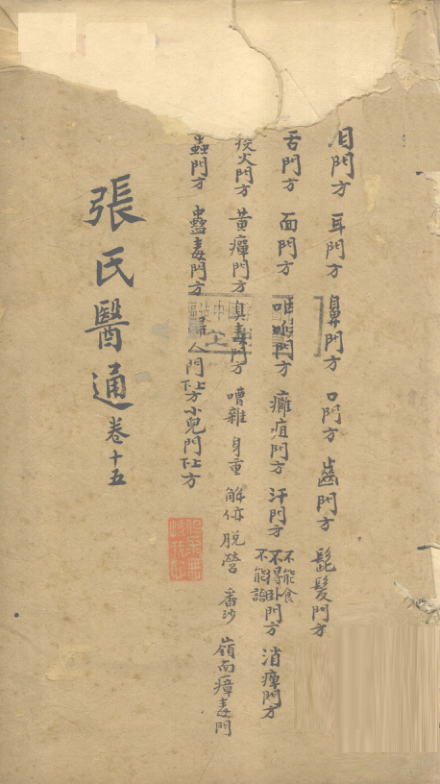 目門方 耳門方 鼻門方 口門方 齒門方 髭髮門方
舌門方 面門方 咽喉門方 癰疽門方 汗門方 不能食 不得卧 不能語 門方 消癉門方
火門方 黃癉門方 臭毒門方 嘈雜 身重 解㑊 脫營 番沙 嶺南瘴毒門
蟲門方 蠱毒門方 婦人門上下方 小兒門上下方
張氏醫通 卷十五